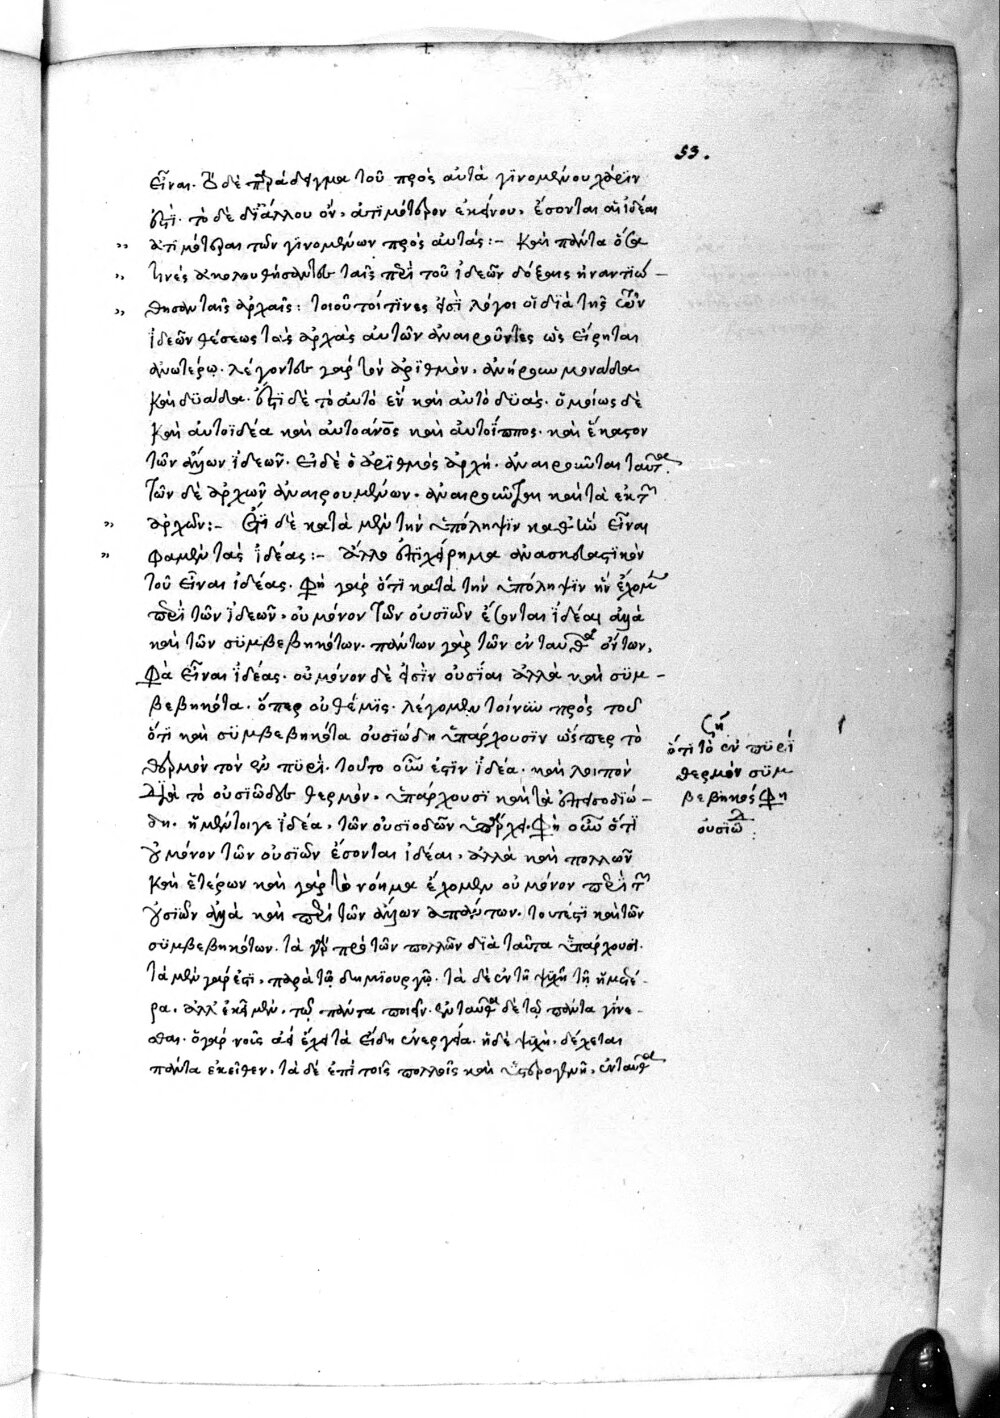 53.
εἶναι. Ὃ δὲ παράδειγμα τοῦ πρὸς αὐτὰ γϊνομένου χάριν
ἐστί. τὸ δὲ δϊ' ἄλλου ὂν, ἀτιμότερον ἐκείνου, ἔσονται αἱ ἰδέαι
ἀτιμότεραι τῶν γϊνομένων πρὸς αὐτάς:- Καὶ πάντα ὅσα
τινὲς ἀκολουθήσαντες ταῖς περὶ τῶν ἰδεῶν δόξαις ἠναντιώ-
θησαν ταῖς ἀρχαῖς: τοιοῦτοί τϊνες εἰσὶ λόγοι οἱ διὰ τῆς τῶν
ἰδεῶν θέσεως τὰς ἀρχὰς αὐτῶν ἀναιροῦντες ὡς εἴρηται
ἀνωτέρω. λέγοντες γὰρ τὸν ἀρϊθμὸν, ἀνῄρουν μονάδα
καὶ δϋάδα. ἔστι δὲ τὸ αὐτὸ ἓν καὶ αὐτὸ δϋὰς. ὁμοίως δὲ
καὶ αὐτοϊδέα καὶ αὐτοάνος καὶ αὐτοΐππος. καὶ ἕκαστον
τῶν ἄλλων ἰδεῶν. εἰ δὲ ὁ ἀρϊθμὸς ἀρχὴ. ἀναιροῦνται ταῦτα.
τῶν δὲ ἀρχῶν ἀναιρουμένων. ἀναιροῦνται καὶ τὰ ἐκ τῶν
ἀρχῶν:- Ἔτι δὲ κατὰ μὲν τὴν ὑπόληψϊν καθ' ἣν εἶναι
φαμὲν τὰς ἰδέας:- ἄλλο ἐπιχείρημα ἀνασκευαστϊκὸν
τοῦ εἶναι ἰδέας. φησὶ γὰρ ὅτι κατὰ τὴν ὑπόληψϊν ἣν ἔχομεν
περὶ τῶν ἰδεῶν, οὐ μόνον τῶν οὐσιῶν ἔσονται ἰδέαι ἀλλὰ
καὶ τῶν σϋμβεβηκότων. πάντων γὰρ τῶν ἐνταῦθα ὄντων,
φασὶν εἶναι ἰδέας. οὐ μόνον δὲ εἰσὶν οὐσίαι ἀλλὰ καὶ σϋμ-
βεβηκότα. ὅπερ οὐ θέμϊς. λέγομεν τοίνυν πρὸς τοῦτο
ὅτι καὶ σϋμβεβηκότα οὐσιώδη ὑπάρχουσϊν ὥσπερ τὸ
θερμὸν τὸν ἐν πϋρί. τούτο οὖν ἐστὶν ἰδέα. καὶ λοιπὸν
διὰ τὸ οὐσιῶδες θερμόν. ὑπάρχουσι καὶ τὰ ἐπεισοδιώ-
δη. ἡ μέντοιγε ἰδέα, τῶν οὐσιοδῶν ὑπάρχει. φησὶ οὖν ὅτι
οὐ μόνον τῶν οὐσιῶν ἔσονται ἰδέαι, ἀλλὰ καὶ πολλῶν
καὶ ἑτέρων καὶ γὰρ τὸ νόημα ἔχομεν οὐ μόνον περὶ τῶν
οὐσιῶν ἀλλὰ καὶ περὶ τῶν ἄλλων ἁπάντων. τουτέστι καὶ τῶν
σϋμβεβηκότων. τὰ γὰρ πρὸ τῶν πολλῶν διὰ ταῦτα ὑπάρχουσι.
τὰ μὲν γάρ ἐστι, παρὰ τῷ δημϊουργῷ. τὰ δὲ ἐν τῇ ψϋχῇ τῇ ἡμετέ-
ρα. ἀλλ' ἐκεῖ μὲν, τῷ πάντα ποιεῖν. ἐνταῦθα δὲ τῷ πάντα γίνε-
σθαι. ὁ γὰρ νοῦς ἀεὶ ἔχει τὰ εἴδη ἐνεργείᾳ. ἡ δὲ ψϋχὴ, δέχεται
πάντα ἐκεῖθεν. τὰ δὲ ἐπὶ τοῖς πολλοῖς καὶ ὑστερογενῆ. ἐνταῦθα
ὅτι τὸ ἐν πϋρὶ
θερμὸν σϋμ
βεβηκός φησι